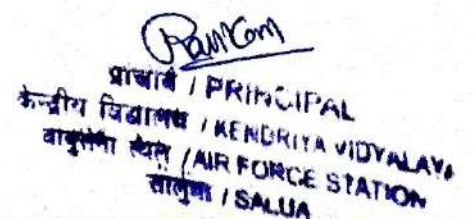 प्राचार्य / PRINCIPAL
केन्द्रीय विद्यालय / KENDRIYA VIDYALAYA
वायुसेना स्थल / AIR FORCE STATION
सालुवा / SALUA